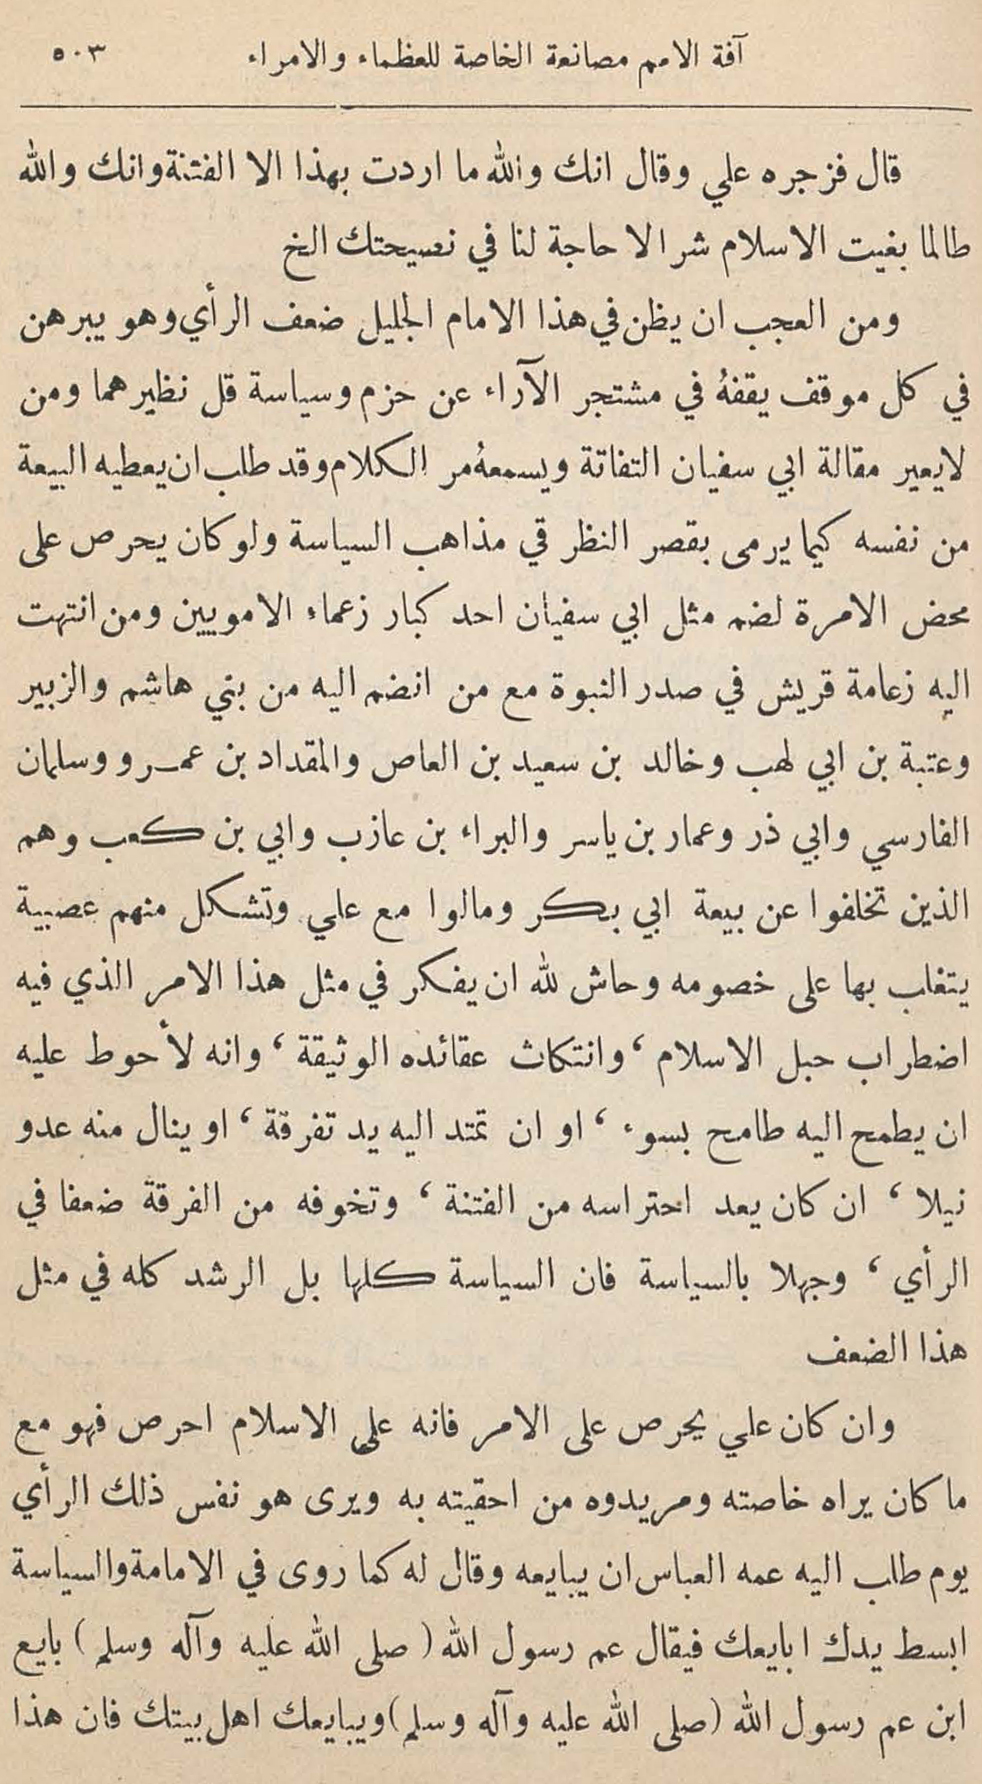 آفة الامم مصانعة الخاصة للعظماء والامراء ٥٠٣
قال فزجره علي وقال انك والله ما اردت بهذا الا الفتنة وانك والله
طالما بغيت الاسلام شرا لا حاجة لنا في نصيحتك الخ
ومن العجب ان يظن في هذا الامام الجليل ضعف الرأي وهو يبرهن
في كل موقف يقفهُ في مشتجر الآراء عن حزم وسياسة قل نظيرهما ومن
لا يعير مقالة ابي سفيان التفاتة ويسمعهُ مر الكلام وقد طلب ان يعطيه البيعة
من نفسه كيما يرمى بقصر النظر قي مذاهب السياسة ولو كان يحرص على
محض الامرة لضم مثل ابي سفيان احد كبار زعماء الامويين ومن انتهت
اليه زعامة قريش في صدر النبوة مع من انضم اليه من بني هاشم والزبير
وعتبة بن ابي لهب وخالد بن سعيد بن العاص والمقداد بن عمرو وسلمان
الفارسي وابي ذر وعمار بن ياسر والبراء بن عازب وابي بن كعب وهم
الذين تخلفوا عن بيعة ابي بكر ومالوا مع علي وتشكل منهم عصبية
يتغلب بها على خصومه وحاش لله ان يفكر في مثل هذا الامر الذي فيه
اضطراب حبل الاسلام ، وانتكاث عقائده الوثيقة ، وانه لأحوط عليه
ان يطمح اليه طامح بسوء ، او ان تمتد اليه يد تفرقة ، او ينال منه عدو
نيلا ، ان كان يعد احتراسه من الفتنة ، وتخوفه من الفرقة ضعفا في
الرأي ، وجهلا بالسياسة فان السياسة كلها بل الرشد كله في مثل
هذا الضعف
وان كان علي يحرص على الامر فانه على الاسلام احرص فهو مع
ما كان يراه خاصته ومريدوه من احقيته به ويرى هو نفس ذلك الرأي
يوم طلب اليه عمه العباس ان يبايعه وقال له كما روى في الامامة والسياسة
ابسط يدك ابايعك فيقال عم رسول الله ( صلى الله عليه وآله وسلم ) بايع
ابن عم رسول الله (صلى الله عليه وآله وسلم) ويبايعك اهل بيتك فان هذا